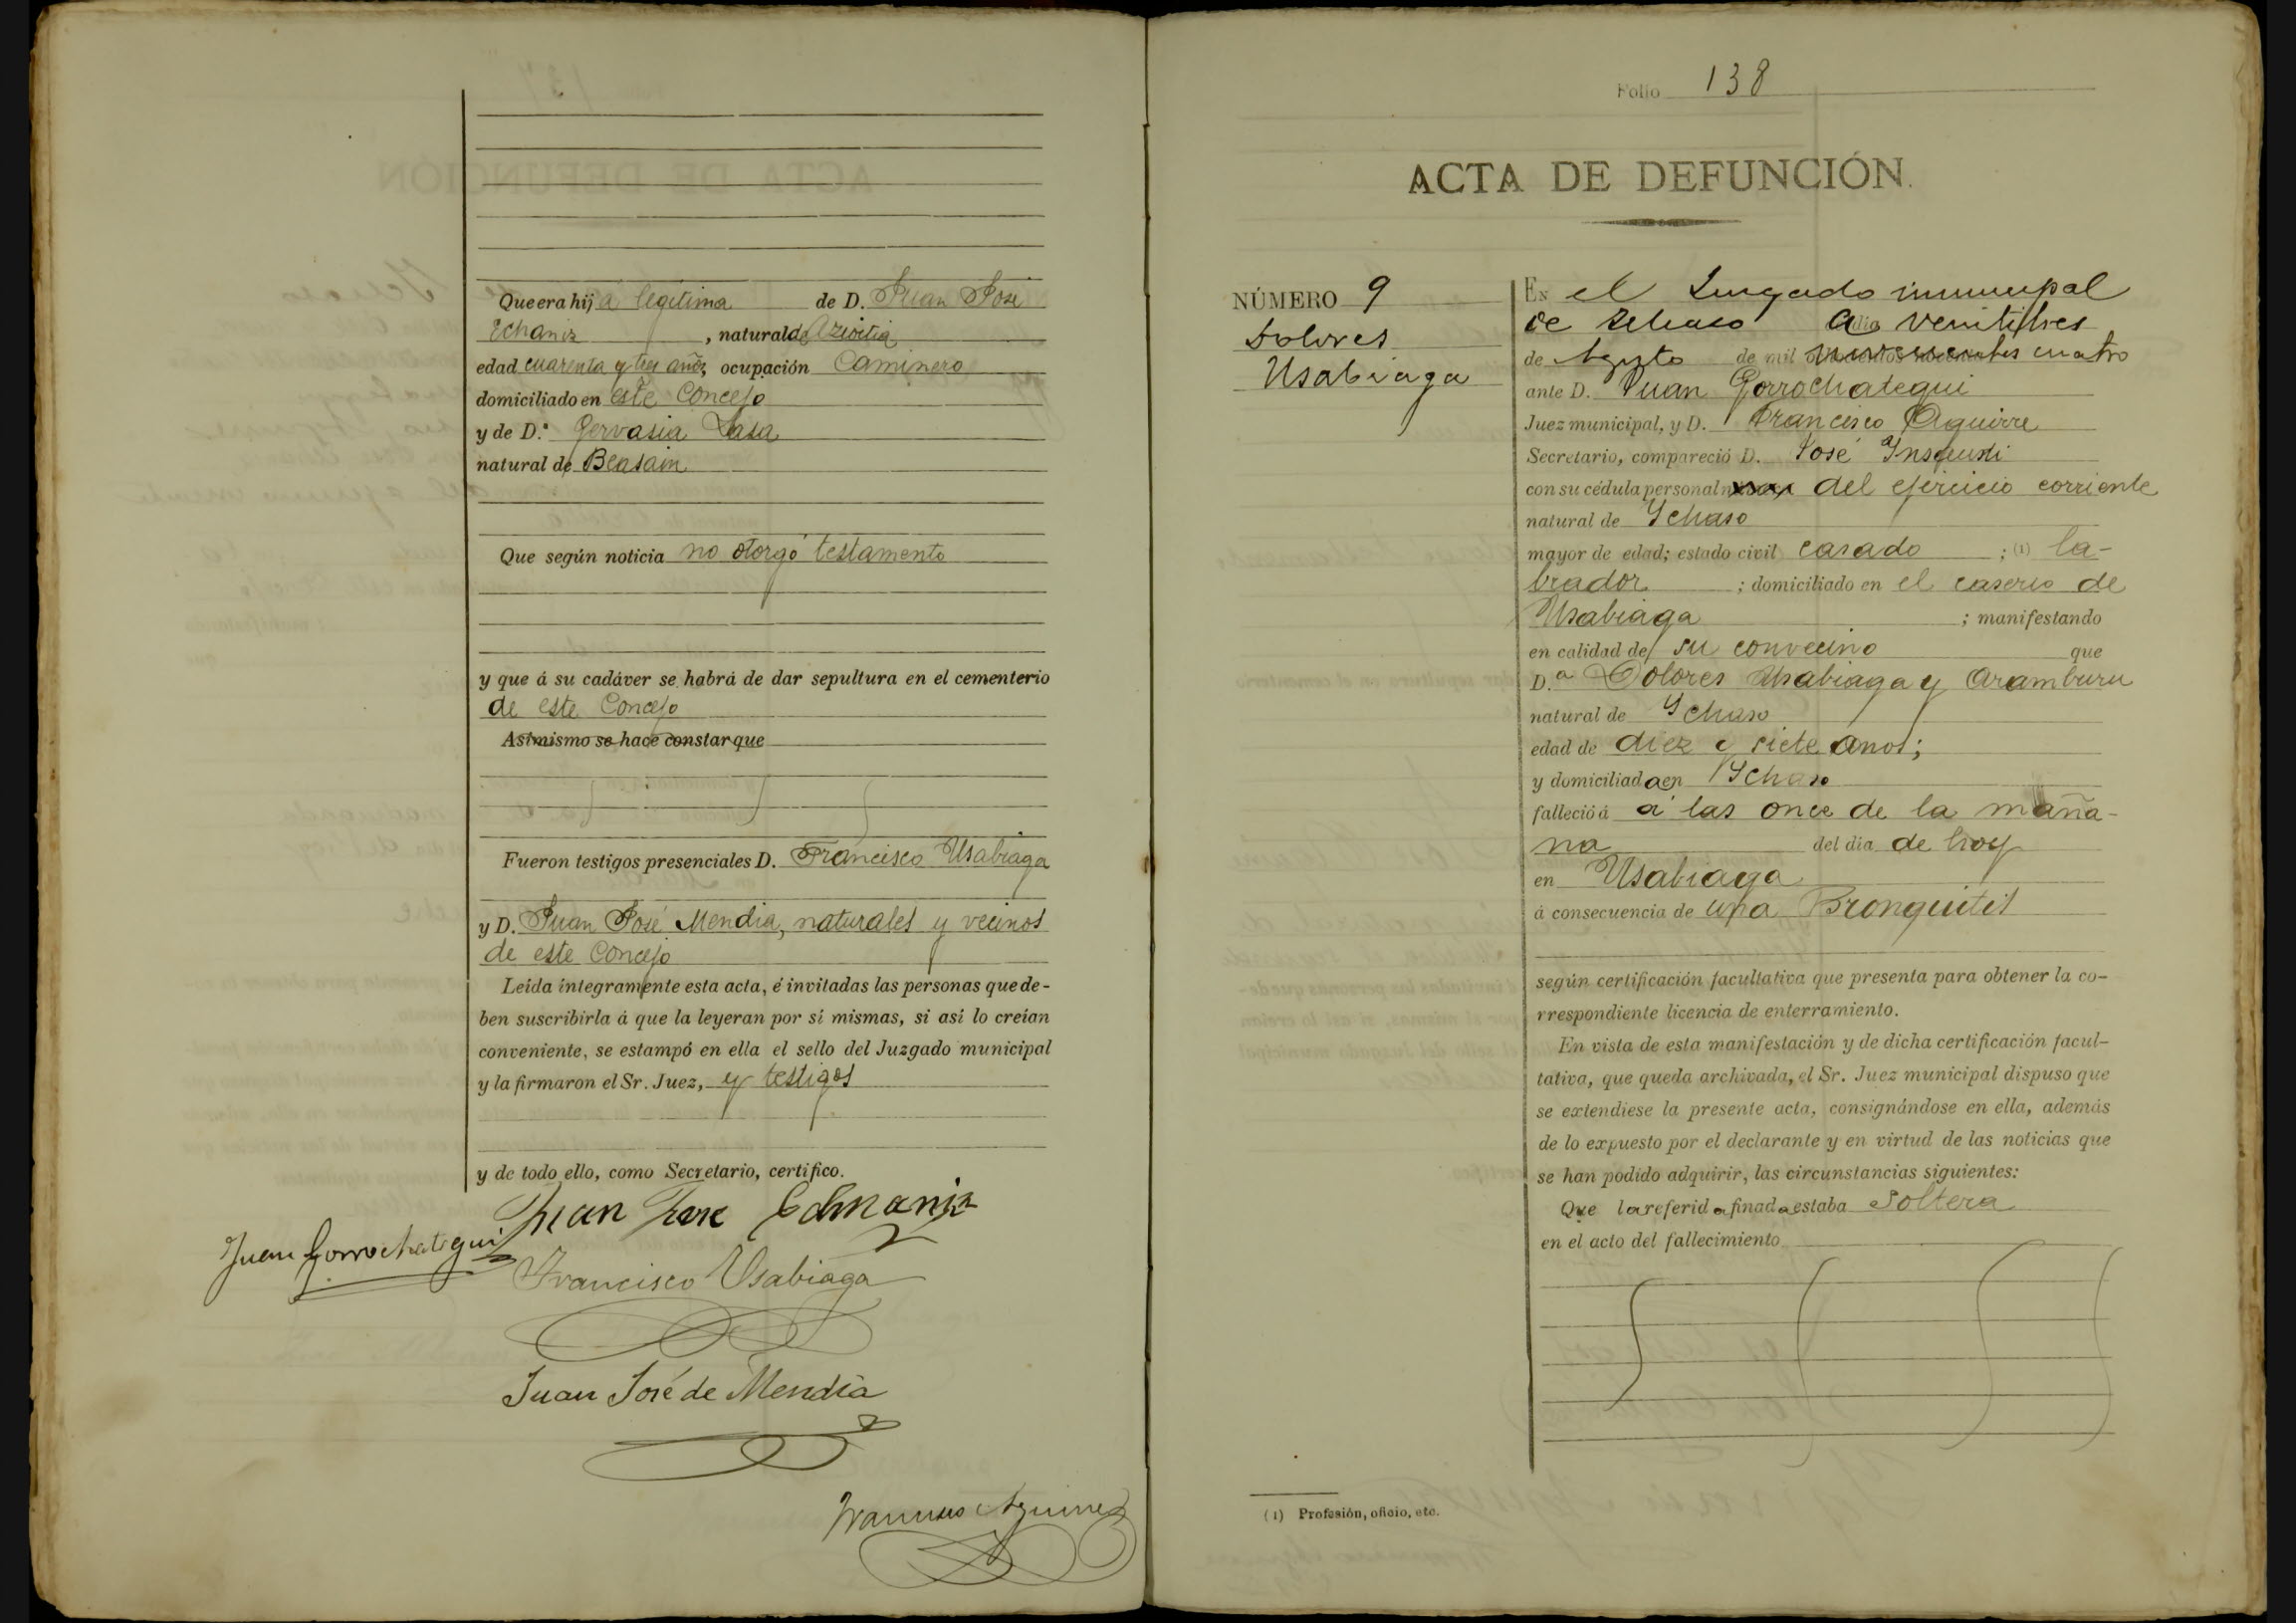 Que era hija legitima de D. Juan José
Echaniz, natural de Azcoitia
edad cuarenta y tres años, ocupación Caminero
domiciliado en este Concejo
y de D.ª Gervasia Lasa
natural de Beasain
Que según noticia no otorgó testamento
y que á su cadáver se habrá de dar sepultura en el cementerio
de este Concejo
Asimismo se hace constar que
Fueron testigos presenciales D. Francisco Usabiaga
y D. Juan José Mendia, naturales y vecinos
de este Concejo
Leída íntegramente esta acta, é invitadas las personas que de-
ben suscribirla á que la leyeran por sí mismas, si así lo creían
conveniente, se estampó en ella el sello del Juzgado municipal
y la firmaron el Sr. Juez, y testigos
y de todo ello, como Secretario, certifico.
Juan Jose Echaniz
Juan Gorrochategui
Francisco Usabiaga
Juan José de Mendia
Francisco Aguirre
Folio 138
ACTA DE DEFUNCIÓN.
NÚMERO 9
Dolores
Usabiaga
En el Juzgado municipal
de Ichaso a día veintitres
de Agosto de mil novecientos cuatro
ante D. Juan Gorrochategui
Juez municipal, y D. Francisco Aguirre
Secretario, compareció D. José Insausti
con su cédula personal del ejercicio corriente
natural de Ichaso
mayor de edad; estado civil casado ; (1) la-
brador ; domiciliado en el caserio de
Usabiaga ; manifestando
en calidad de su convecino que
D.ª Dolores Usabiaga y Aramburu
natural de Ichaso
edad de diez y siete años;
y domiciliada en Ichaso
falleció á á las once de la maña-
na del día de hoy
en Usabiaga
á consecuencia de una Bronquitis
según certificación facultativa que presenta para obtener la co-
rrespondiente licencia de enterramiento.
En vista de esta manifestación y de dicha certificación facul-
tativa, que queda archivada, el Sr. Juez municipal dispuso que
se extendiese la presente acta, consignándose en ella, además
de lo expuesto por el declarante y en virtud de las noticias que
se han podido adquirir, las circunstancias siguientes:
Que la referida finada estaba Soltera
en el acto del fallecimiento
(1) Profesión, oficio, etc.